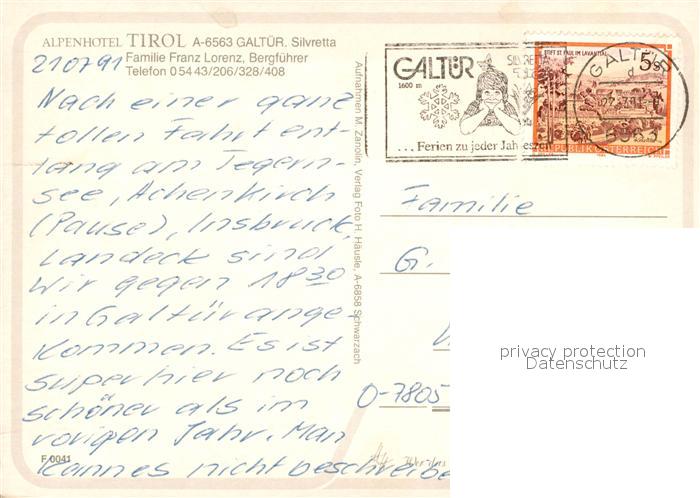 ALPENHOTEL TIROL A-6563 GALTÜR. Silvretta
Familie Franz Lorenz, Bergführer
Telefon 05443/206/328/408
210791
Nach einer ganz
tollen Fahrt ent-
lang am Tegern-
see, Achenkirch
(Pause), Insbruck,
Landeck sind
wir gegen 18 30
in Galtür ange-
kommen. Es ist
super hier noch
schöner als im
vorigen Jahr. Man
kann es nicht beschreibe
F 0041
Aufnahmen M. Zanolin, Verlag Foto H. Häusle, A-6858 Schwarzach
GALTÜR
1600 m
... Ferien zu jeder Jahreszeit
STIFT ST. PAUL IM LAVANTTAL
5
REPUBLIK ÖSTERREICH
GALTÜR
6563
Familie
G.
O-7805
privacy protection
Datenschutz